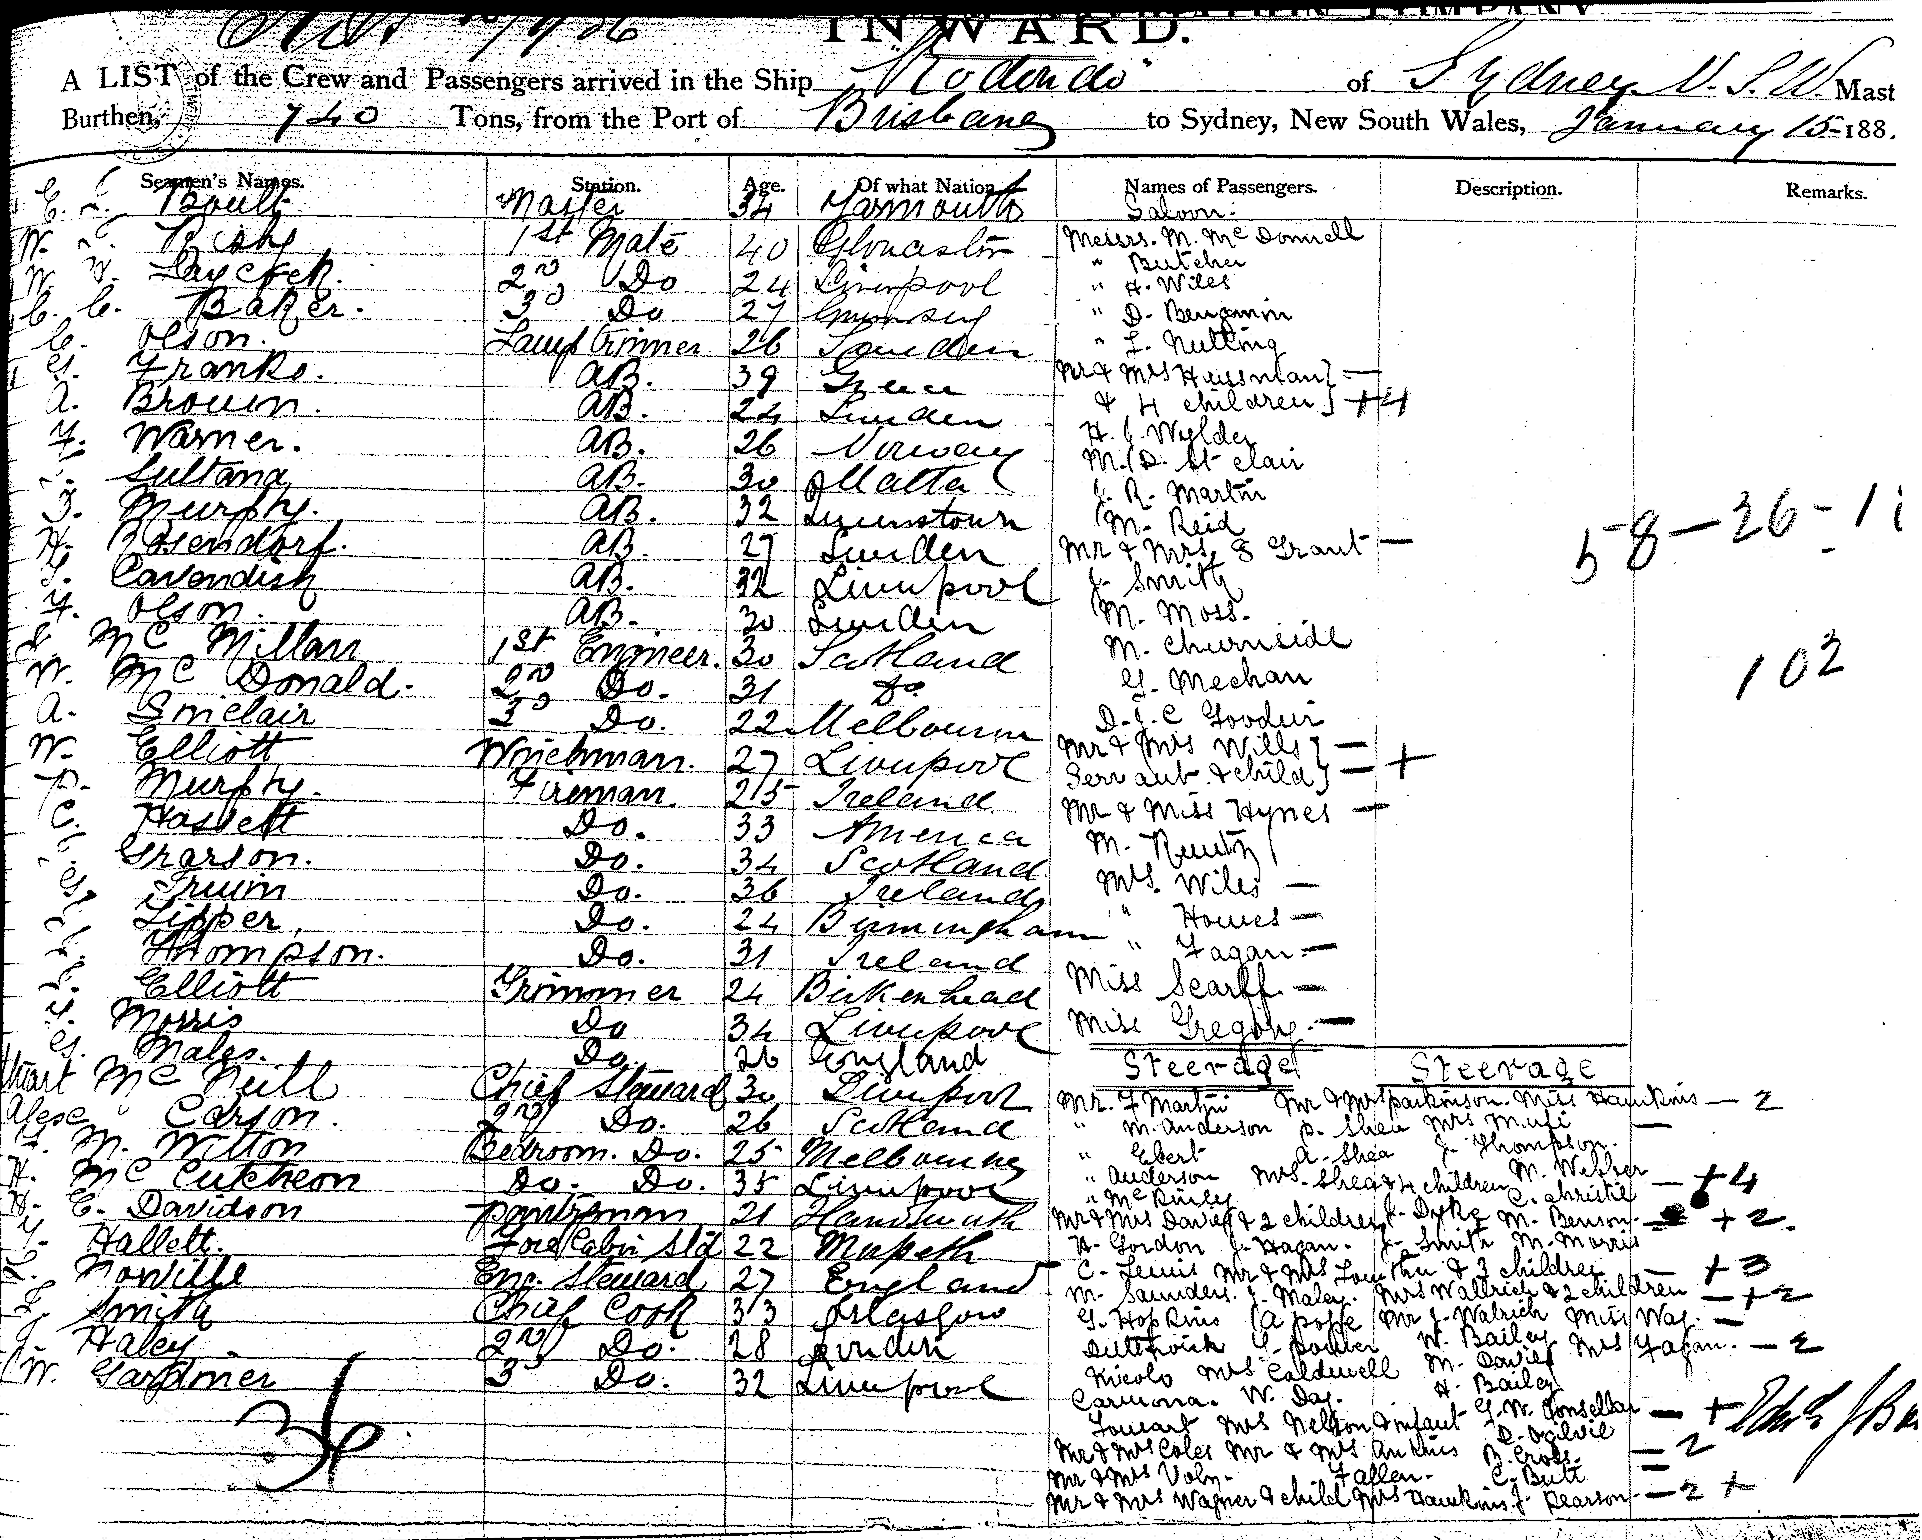 INWARD.
A LIST of the Crew and Passengers arrived in the Ship "Rodondo" of Sydney N.S.W. Mast
Burthen, 740 Tons, from the Port of Brisbane to Sydney, New South Wales, January 15 188.
Seamen's Names. Station. Age. Of what Nation Names of Passengers. Description. Remarks.
Boult Master 34 Yarmouth Saloon.
W. Risby 1st Mate 40 Gloucester Messrs. M. McDonnell
W. Laycock. 2nd Do 24 Liverpool " Butcher
" H. Wiles
C. C. Baker. 3d Do 27 Grimsby " D. Benjamin
C. Olson. Lamp Trimmer 26 Sweden " L. Nutting
G. Franks. AB. 39 Greece Mr & Mrs Hussman } —
A. Brown. AB. 24 Sweden & 4 children } +4
F. Warner. AB. 26 Norway H. J. Wylder
M. D. St Clair
Sultana AB. 30 Malta J. R. Martin
J. Murphy. AB. 32 Queenstown M. Reid
H. Rosendorf. AB. 27 Sweden Mr & Mrs Grant — 58-26-11
Cavendish AB. 32 Liverpool J. Smith
F. Olson. AB. 30 Sweden M. Moss.
McMillan 1st Engineer. 30 Scotland M. Churnside
W. McDonald. 2nd Do. 31 Do G. Mechan 102
A. Sinclair 3d Do. 22 Melbourne D. J. C Goodwin
W. Elliott Winchman. 27 Liverpool Mr & Mrs Wills } —
P. Murphy. Fireman 25 Ireland Servant & child } — +
C. Hassett Do. 33 America Mr & Miss Hynes —
Grarson. Do. 34 Scotland M.
Irwin Do. 36 Ireland Mrs. Wiles —
Lipper, Do. 24 Birmingham " Howes —
Thompson. Do. 31 Ireland " Fagan. —
Elliott Trimmer 24 Birkenhead Miss Scarff. —
Morris Do 34 Liverpool Miss Gregory. —
G. Males. Do. 26 England Steerage Steerage
Stuart McNeill Chief Steward 30 Liverpool Mr. F Martin Mr & Mrs Parkinson. Miss Hawkins — 2
Alexr Carson. 2nd Do. 26 Scotland " M. Anderson P. Shea Mrs —
M. Wilton Bedroom. Do. 25 Melbourne " Ebert A. Shea J. Thompson.
H. McCutcheon Do. Do. 35 Liverpool " Anderson Mrs. Shea & 4 children W. Webber — +4
" McKinley C. Christie
H. E. Davidson Pantryman 21 Handsworth Mr & Mrs Davies & 2 children J. Dyke M. Benson. — +2.
Hallett. Fore Cabin Std 22 Morpeth H. Gordon J. Hagan. J. Smith M. Morris
Noville Eng. Steward 27 England C. Lewis Mr & Mrs & 3 children — +3
Smith Chief Cook 33 Glasgow M. Saunders. J. Maley. Mrs Wallrich & 2 children — +2
Haley 2nd Do. 28 London G. Hopkins A Poppe Mr J. Walrich Miss Way. —
W. Gardiner 3d Do. 32 Liverpool Butterwick W. Bailey Mrs Fagan. — 2
Nicolo Mrs Caldwell M. Davies
Carmona. W. Day. H. Bailey
36 Mrs Nelson & infant — +
D. Ogilvie
Mr & Mrs Coles Mr & Mrs Ankins B. Cross. — 2
Mr & Mrs Fallen. C. Butt
Mr & Mrs Wagner & child Mrs Hawkins J. Pearson. — 2 +